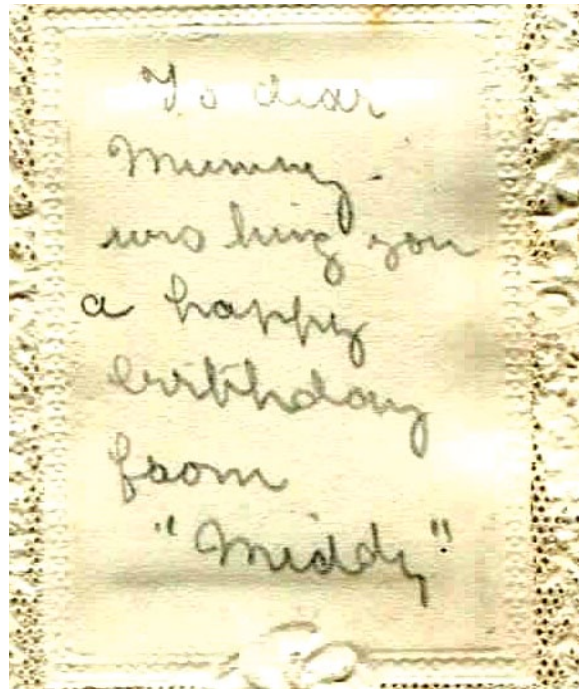 To dear
Mummy.
wishing you
a happy
birthday
from
"Middy"